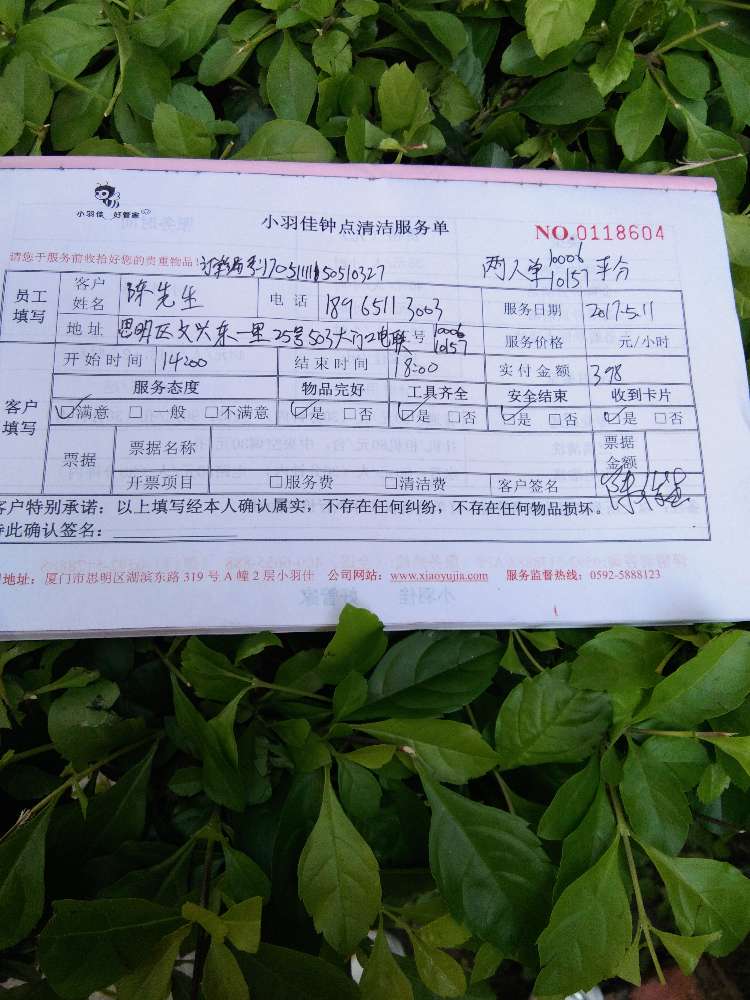 小羽佳 好管家
小羽佳钟点清洁服务单
NO.0118604
请您于服务前收拾好您的贵重物品!
订单编号:170511115050510327
两人单 10006 10157 平分
员工填写 客户姓名 陈先生 电话 18965113003 服务日期 2017.5.11
地址 思明区文兴东一里25号503大门口电联 号 10006 10157 服务价格 元/小时
开始时间 14:00 结束时间 18:00 实付金额 398
客户填写 服务态度 物品完好 工具齐全 安全结束 收到卡片
☑满意 □一般 □不满意 ☑是 □否 ☑是 □否 ☑是 □否 ☑是 □否
票据 票据名称 票据金额
开票项目 □服务费 □清洁费 客户签名
客户特别承诺:以上填写经本人确认属实,不存在任何纠纷,不存在任何物品损坏。
特此确认签名:
地址:厦门市思明区湖滨东路319号A幢2层小羽佳 公司网站:www.xiaoyujia.com 服务监督热线:0592-5888123